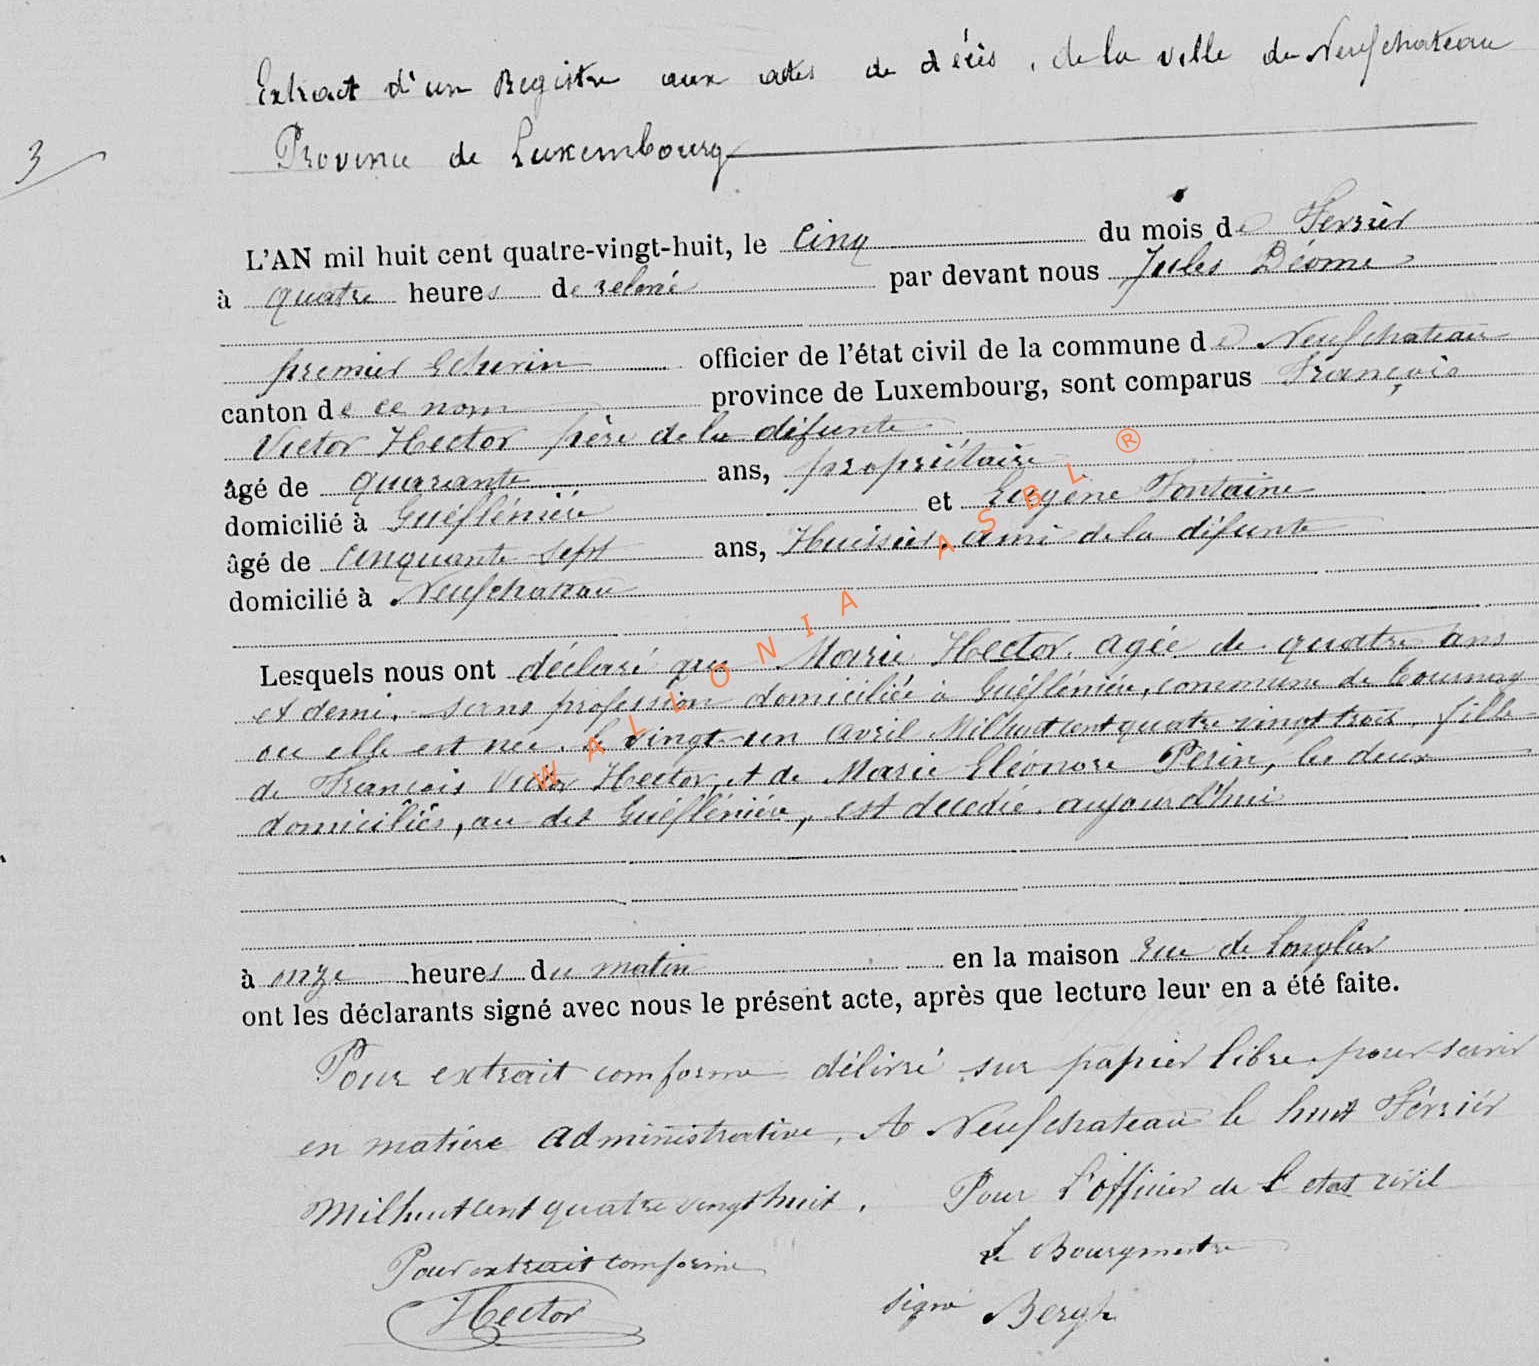 Extract d'un Registre aux actes de décès, de la ville de Neufchateau
3
Province de Luxembourg
L'AN mil huit cent quatre-vingt-huit, le Cinq du mois de Fevrièr
à quatre heures de relevé par devant nous Jules Déome
premier Echevin officier de l'état civil de la commune de Neufchateau
canton de ce nom province de Luxembourg, sont comparus François
Victor Hector père de la défunte
âgé de quarante ans, propriétaire
domicilié à Guéflénière et Eugène Fontaine
âgé de Cinquante-sept ans, Huissier, ami de la défunte
domicilié à Neufchateau
Lesquels nous ont déclaré que Marie Hector, agée de quatre ans
et demi, sans profession domiciliée à Guéflénière, commune de Tournay
ou elle est née, le vingt-un avril Milhuitcentquatrevingttrois, fille
de François Victor Hector, et de Marie Eléonore Perin, les deux
domiciliés, au dit Guéflénière, est decedée, aujourd'hui
à onze heures du matin en la maison rue de Longlier
ont les déclarants signé avec nous le présent acte, après que lecture leur en a été faite.
Pour extrait conforme délivré sur papier libre pour servir
en matière administrative, A Neufchateau le huit Février
Milhuitcent quatrevingthuit. Pour l'officier de l'etat civil
Pour extrait conforme Le Bourgmestre
Hector signé Bergh
WALLONIA ASBL ®